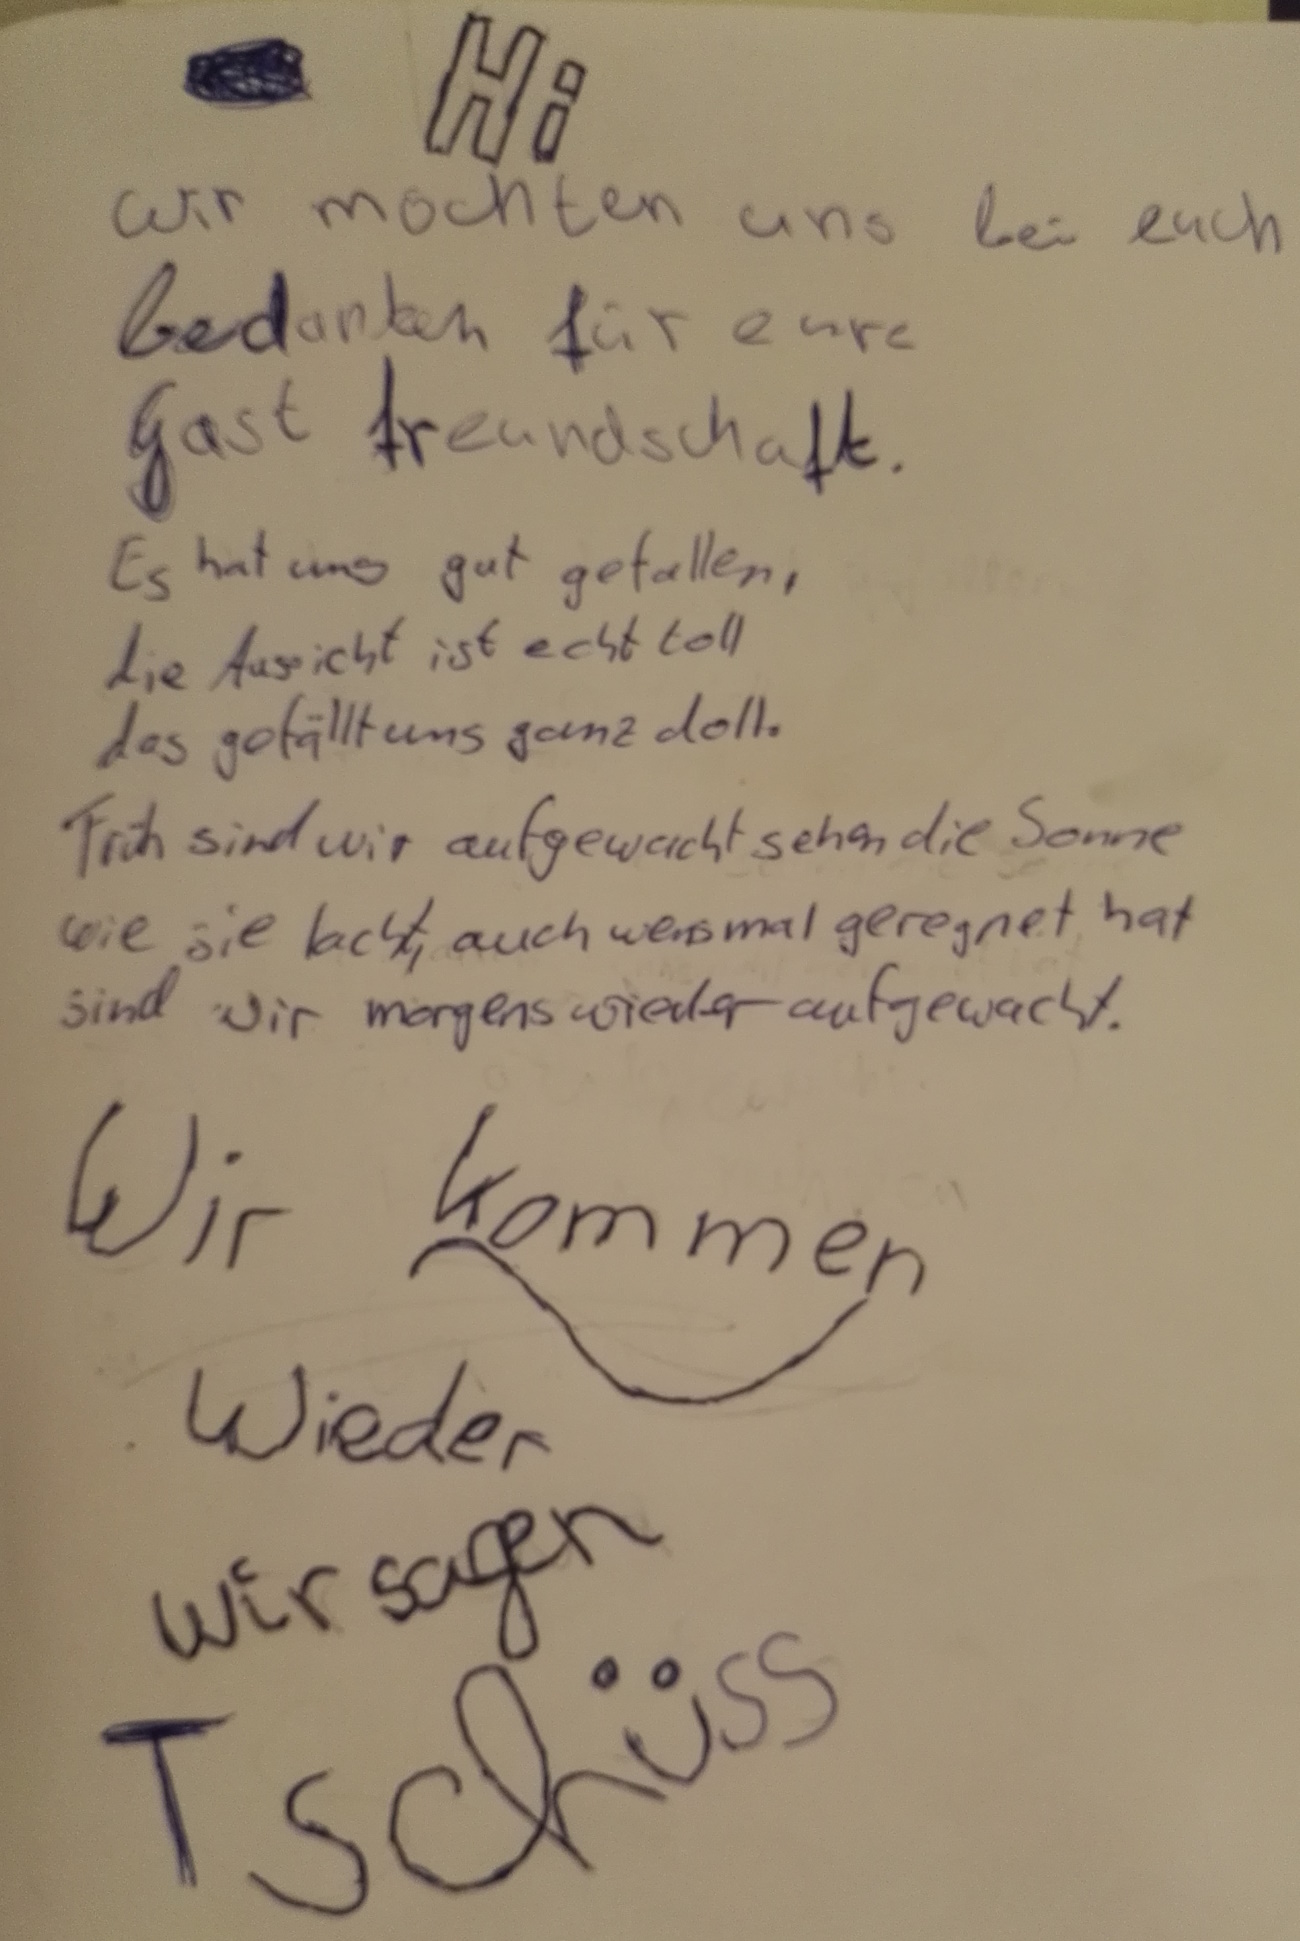 Hi
wir mochten uns bei euch
bedanken für eure
Gast freundschaft.
Es hat uns gut gefallen,
die Aussicht ist echt toll
das gefällt uns ganz doll.
Früh sind wir aufgewacht sehen die Sonne
wie sie lacht, auch wens mal geregnet hat
sind wir morgens wieder aufgewacht.
Wir kommen
Wieder
wir sagen
Tschüss